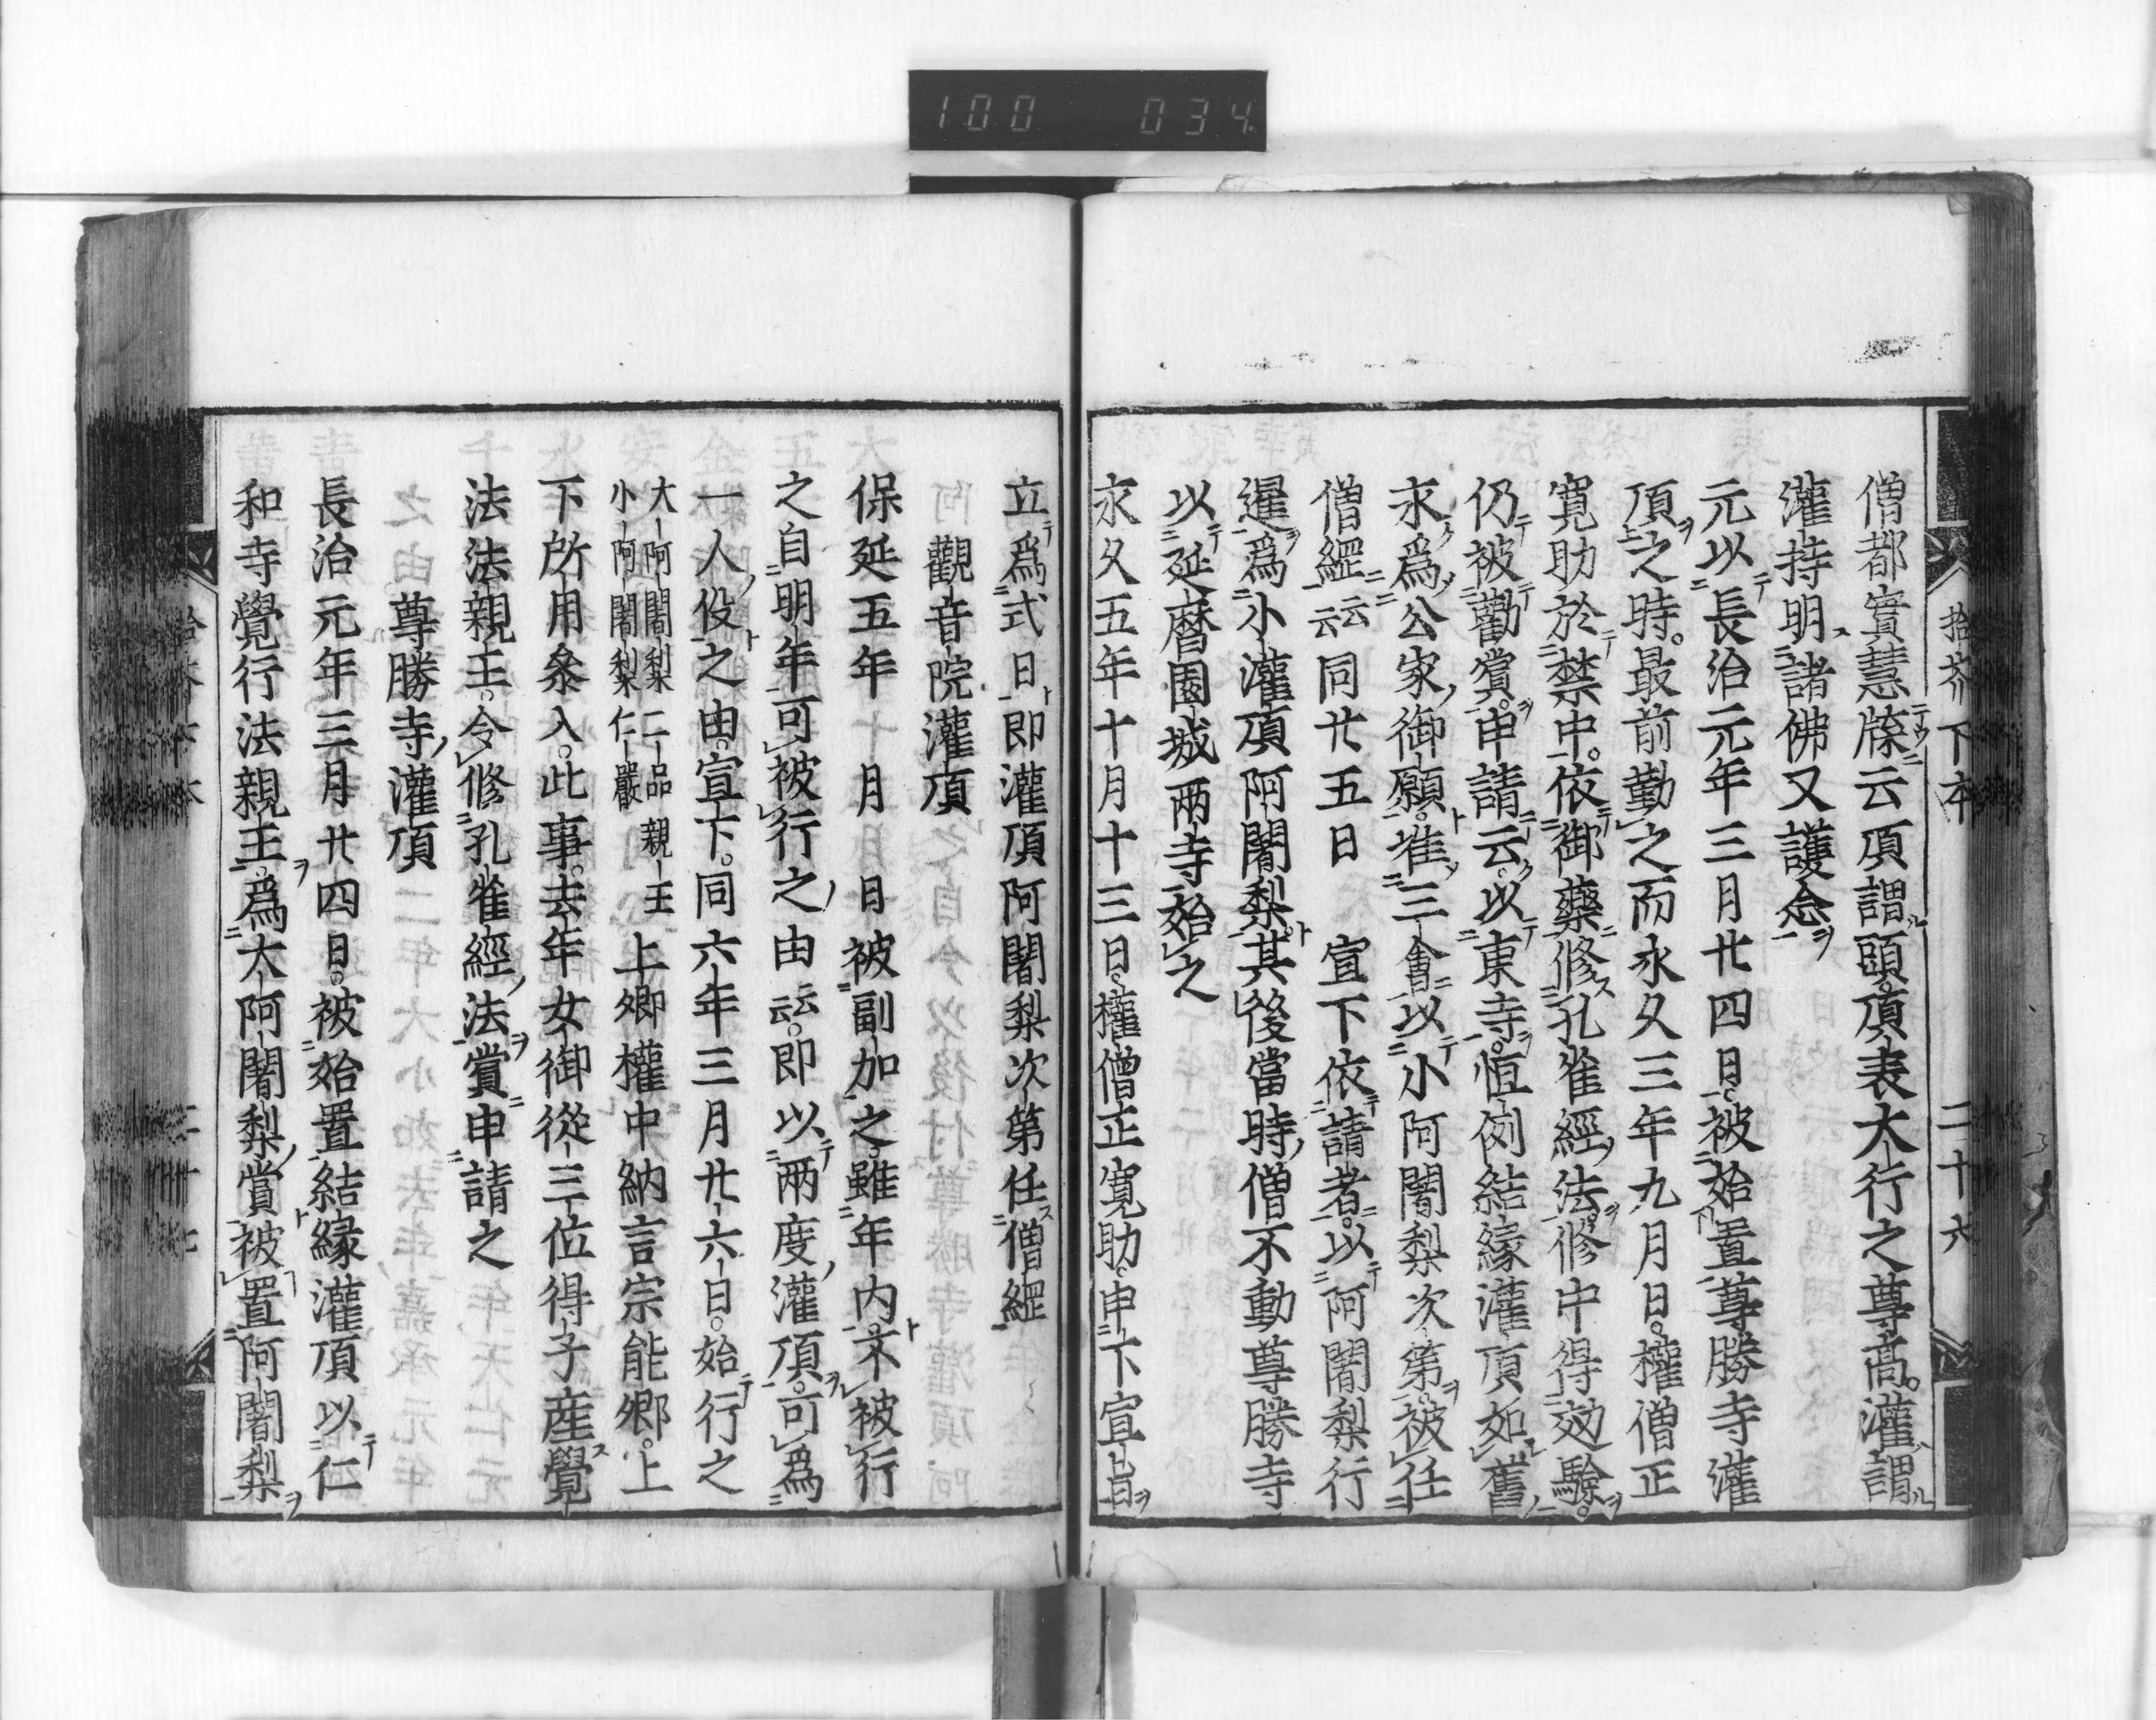 100 034
拾芥下本 二十六
僧都實慧牒云頂謂頭頂表大行之尊髙灌謂
灌持明諸佛又護念
元以長治元年三月廿四日被始置尊勝寺灌
頂之時最前勤之而永久三年九月日權僧正
寛助於禁中依御藥修孔雀經法修中得効驗
仍被勸賞申請云以東寺恒例結緣灌頂如舊
求爲公家御願准三會以小阿闍梨次第被任
僧綱云云同廿五日 宣下依請者以阿闍梨行
暹爲小灌頂阿闍梨其後當時僧不動尊勝寺
以延暦園城兩寺始之
永久五年十月十三日權僧正寛助申下宣旨
立爲式日即灌頂阿闍梨次第任僧綱
觀音院灌頂
保延五年十月 日被副加之雖年内不被行
之自明年可被行之由云云即以兩度灌頂可爲
一人役之由宣下同六年三月廿六日始行之
大阿闍梨二品親王
小阿闍梨仁嚴
上卿權中納言宗能卿上
下所用叅入此事去年女御從三位得子産覺
法法親王令修孔雀經法賞申請之
尊勝寺灌頂
長治元年三月廿四日被始置結緣灌頂以仁
和寺覺行法親王爲大阿闍梨賞被置阿闍梨